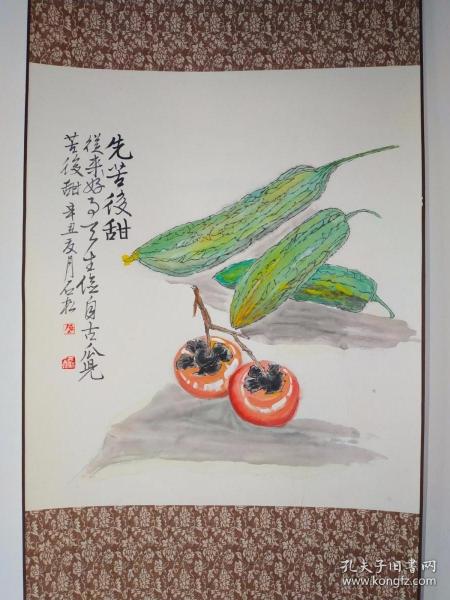 先苦後甜
從来好事天生俭自古瓜兒
苦後甜 辛丑夏月石松
孔夫子旧书网
www.kongfz.com